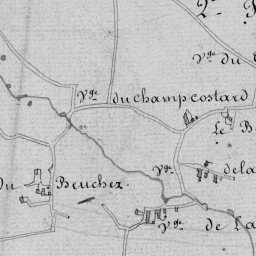 Vge du
Vge du champ costard
Le B
Vge
dela
du Beuchez
Vge de La